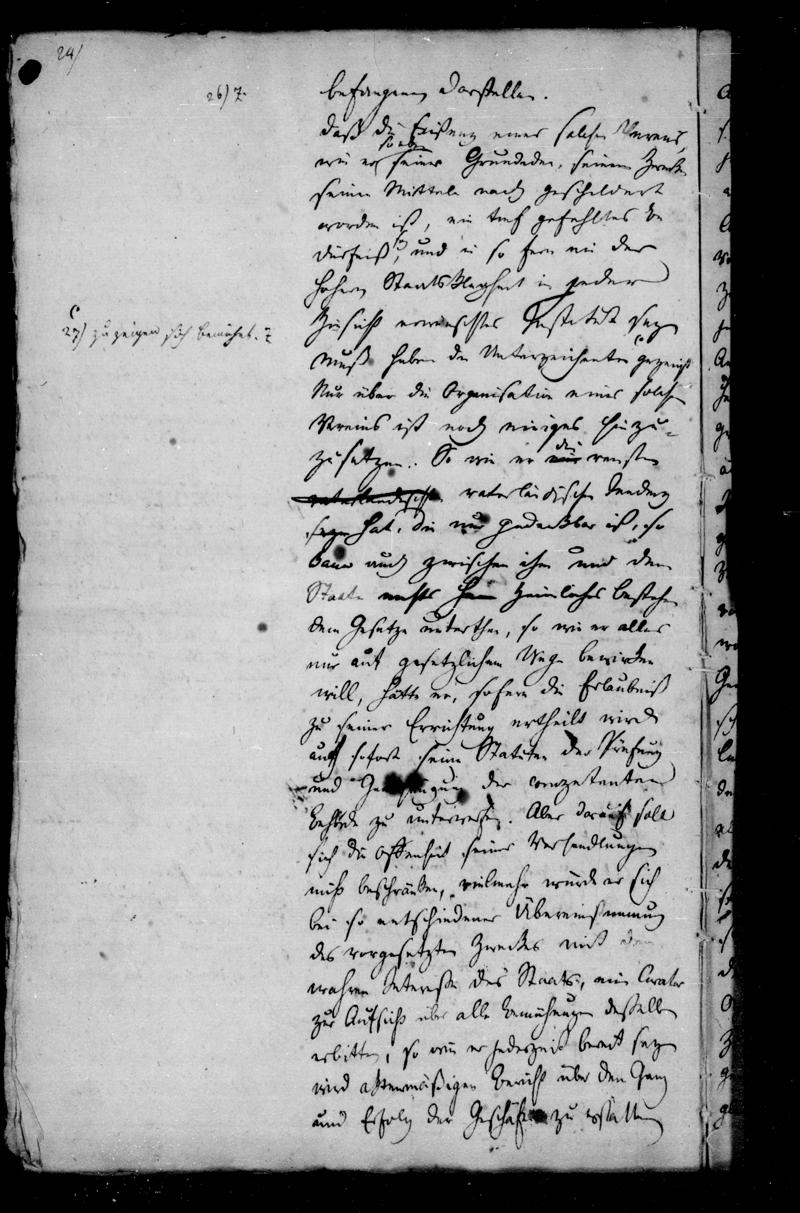 24)
26) 7.
befangenen darstellen.
Daß die Existenz eines solchen Vereins,
wie er so eben seinen Grundideen, seinem Zwecke
seinen Mitteln nach geschildert
worden ist, ein tief gefühltes Be
dürfniß, und in so fern ein der
hohen Staats Klugheit in jeder
Hinsicht erwünschtes Institut seyn
muß haben die Unterzeichneten gezeigt
27) zu zeigen sich bemühet. 7
Nur über die Organisation eines solchen
Vereins ist noch einiges hinzu-
zusetzen. So wie er die reinste
vaterländische Tendenz
hat, die nur gedenkbar ist, so
kann auch zwischen ihm und dem
Staate nichts Heimliches bestehen
dem Gesetze unterthan, so wie er alles
nur auf gesetzlichem Wege bewirken
will, hätte er, sofern die Erlaubniß
zu seiner Errichtung ertheilt wird
auch sofort seine Statuten der Prüfung
und Genehmigung der competenten
Behörde zu unterwerfen. Aber darauf soll
sich die Offenheit seiner Verhandlungen
nicht beschränken, vielmehr würde er sich
bei so entschiedener Übereinstimmung
des vorgesetzten Zweckes mit dem
wahren Interesse des Staats, einen Curator
zur Aufsicht über alle Bemühungen desselben
erbitten, so wie er jederzeit bereit seyn
wird aktenmäßigen Bericht über den Gang
und Erfolg der Geschäfte zu erstatten